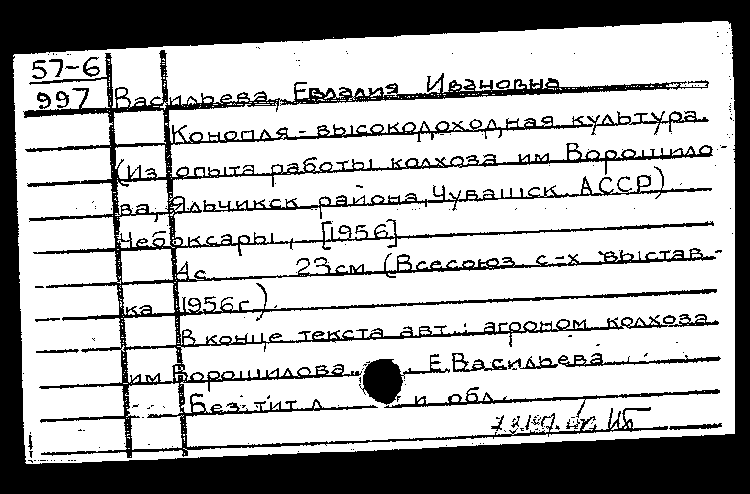 57-6
997 Васильева, Евлалия Ивановна
Конопля - высокодоходная культура.
(Из опыта работы колхоза им Ворошило-
ва, Яльчикск района, Чувашск. АССР)
Чебоксары, [1956]
4с. 23см (Всесоюз с-х выстав-
ка 1956г.)
В конце текста авт.: агроном колхоза
им Ворошилова... Е.Васильева
Без тит л и обл.